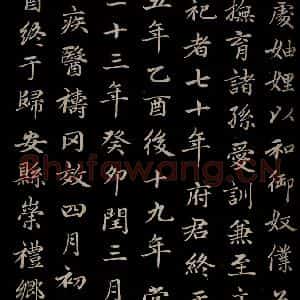 處妯娌以和御奴僕
撫育諸孫愛訓兼至
祀者七十年府君終
五年乙酉後十九年
二十三年癸卯閏三月
疾醫禱罔效四月初
酉終于歸安縣崇禮鄉
Shufawang.CN